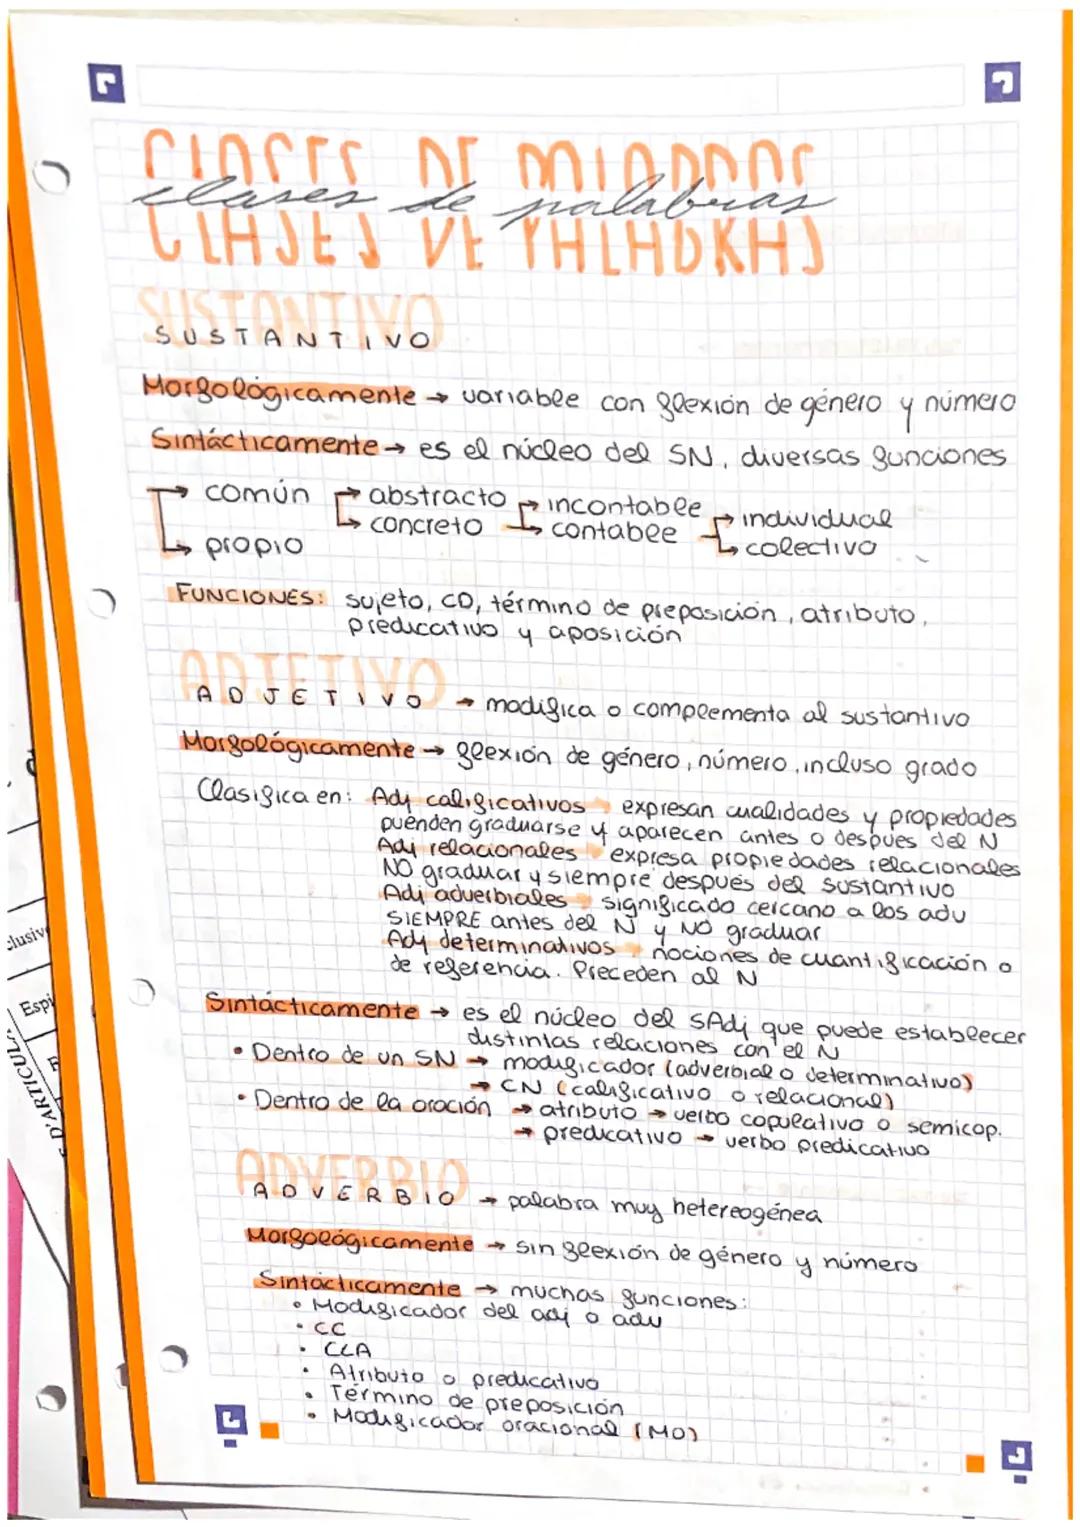 CLASES DE PALABRAS
clases de palabras
SUSTANTIVO
SUSTANTIVO
Morfológicamente → variable con flexión de género y número
Sintácticamente → es el núcleo del SN, diversas funciones
→ común → abstracto → incontable → individual
→ concreto → contable → colectivo
→ propio
FUNCIONES: sujeto, CD, término de preposición, atributo,
predicativo y aposición
ADJETIVO
ADJETIVO → modifica o complementa al sustantivo
Morfológicamente → flexión de género, número, incluso grado
Clasifica en: Adj calificativos → expresan cualidades y propiedades
puenden graduarse y aparecen antes o después del N
Adj relacionales → expresa propiedades relacionales
NO graduar y siempre después del sustantivo
Adj adverbiales → significado cercano a los adv
SIEMPRE antes del N y NO graduar
Adj determinativos → nociones de cuantificación o
de referencia. Preceden al N
Sintácticamente → es el núcleo del SAdj que puede establecer
distintas relaciones con el N
• Dentro de un SN → modificador (adverbial o determinativo)
→ CN (calificativo o relacional)
• Dentro de la oración → atributo → verbo copulativo o semicop.
→ predicativo → verbo predicativo
ADVERBIO
ADVERBIO → palabra muy hetereogénea
Morfológicamente → sin flexión de género y número
Sintácticamente → muchas funciones:
• Modificador del adj o adv
• CC
• CLA
• Atributo o predicativo
• Término de preposición
• Modificador oracional (MO)
clusiv
Espi
D'ARTICUL